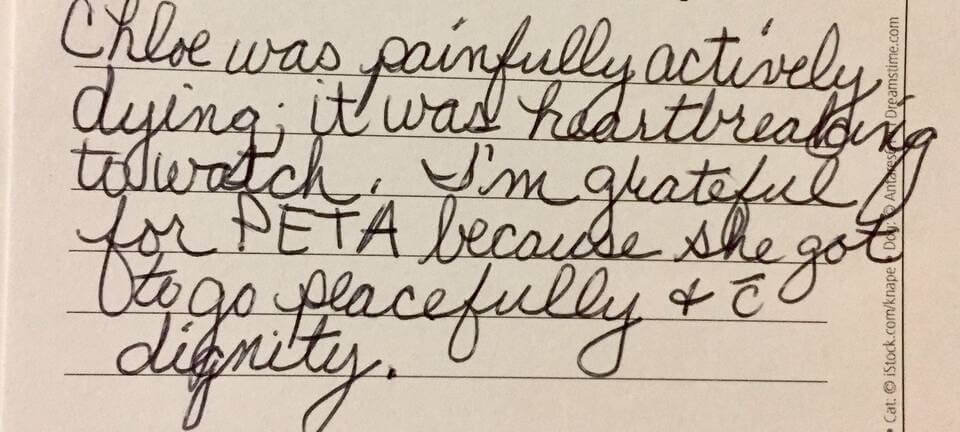 Chloe was painfully actively
dying; it was heartbreaking
to watch. I'm grateful
for PETA because she got
to go peacefully & c̄
dignity.
• Cat: © iStock.com/knape • Dog: © Antares Dreamstime.com